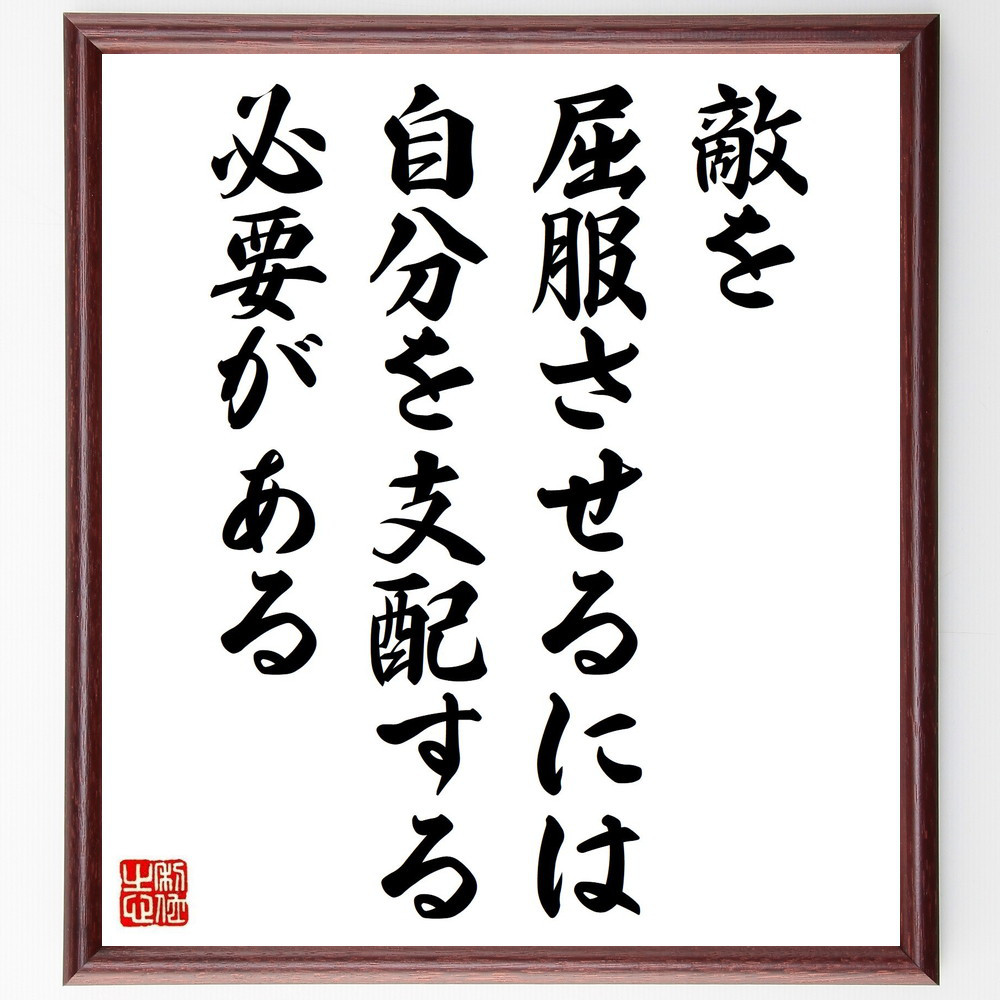 敵を
屈服させるには
自分を支配する
必要がある